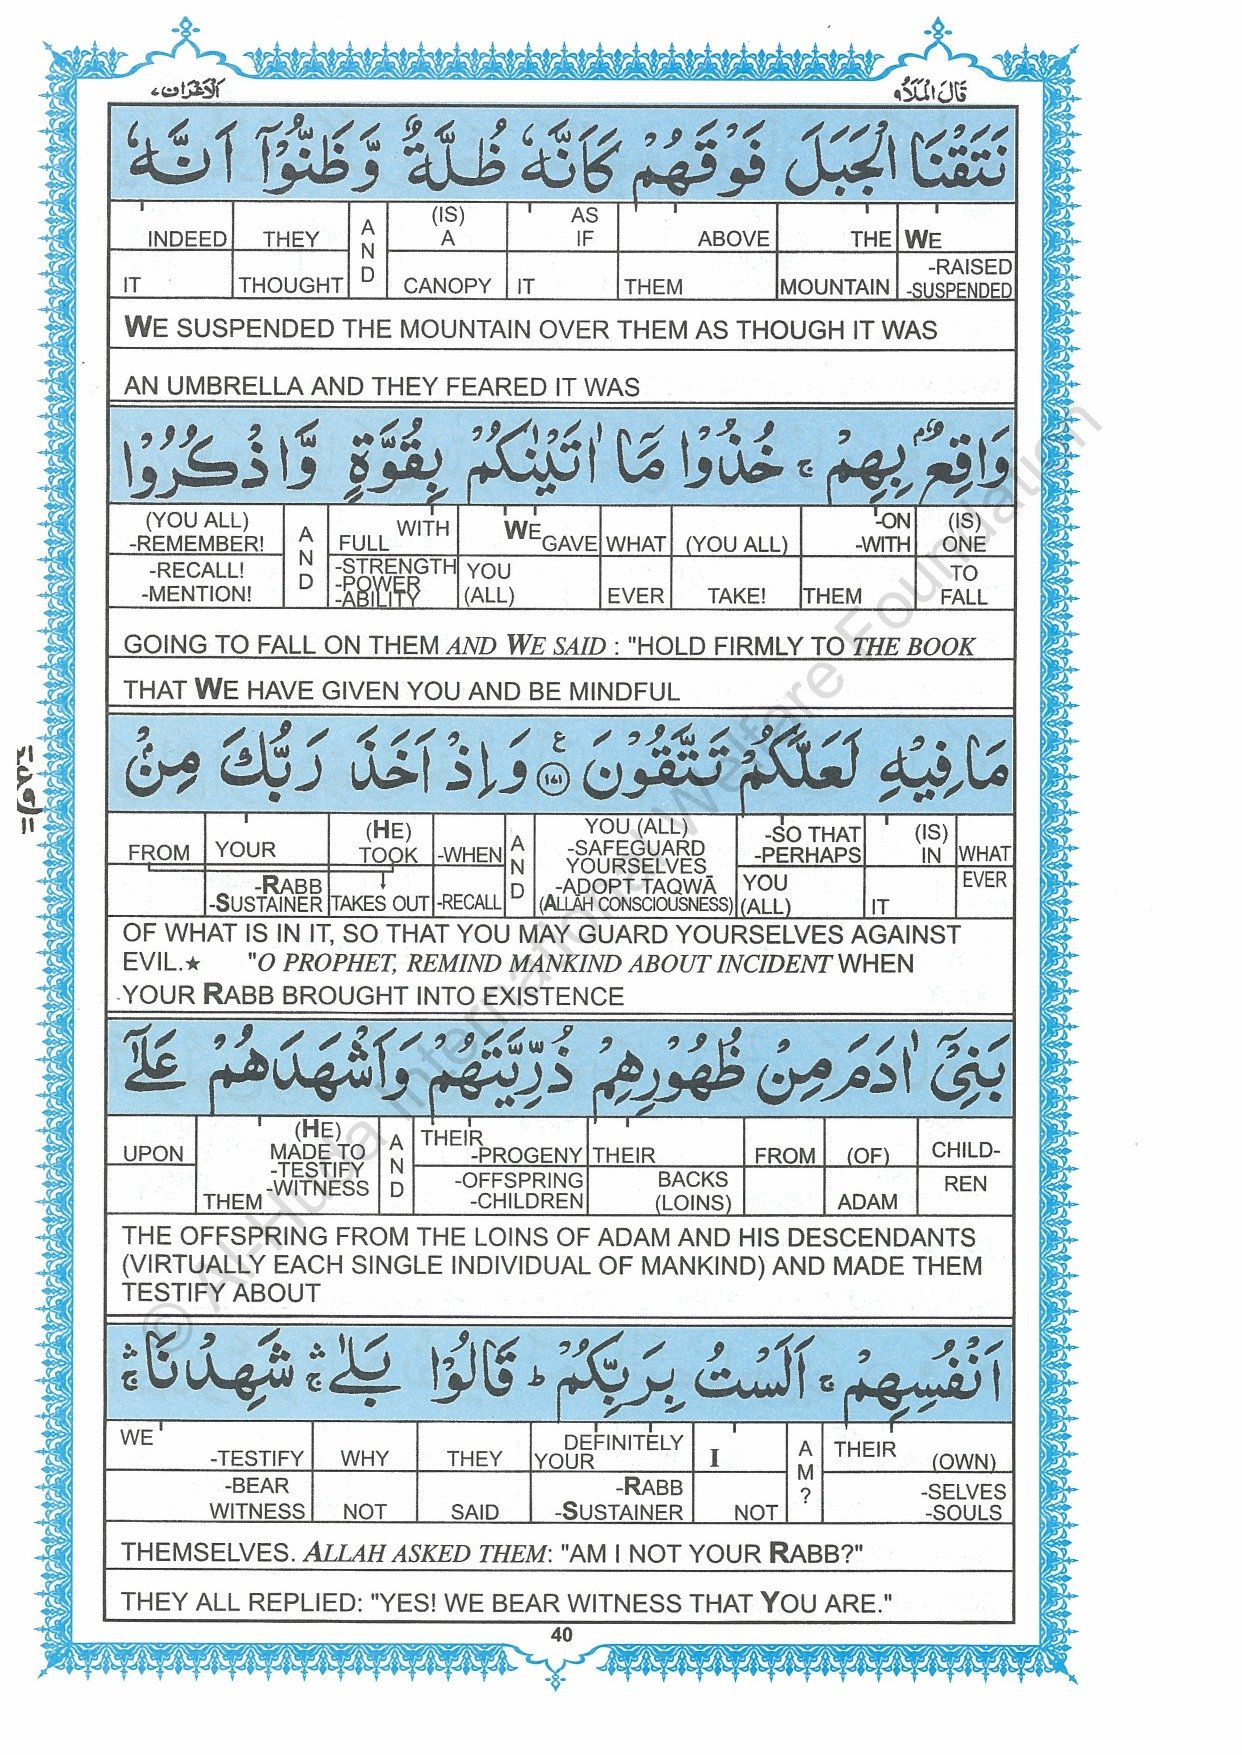 الاعراف ٧
قَالَ الْمَلَأُ ٩
نَتَقْنَا الْجَبَلَ فَوْقَهُمْ كَاَنَّهٗ ظُلَّةٌ وَّظَنُّوْٓا اَنَّهٗ
INDEED THEY AND (IS) A AS IF ABOVE THE WE
IT THOUGHT CANOPY IT THEM MOUNTAIN -RAISED -SUSPENDED
WE SUSPENDED THE MOUNTAIN OVER THEM AS THOUGH IT WAS
AN UMBRELLA AND THEY FEARED IT WAS
وَاقِعٌۢ بِهِمْ ۚ خُذُوْا مَآ اٰتَيْنٰكُمْ بِقُوَّةٍ وَّاذْكُرُوْا
(YOU ALL) -REMEMBER! AND FULL WITH WE GAVE WHAT (YOU ALL) -ON -WITH (IS) ONE
-RECALL! -MENTION! -STRENGTH -POWER -ABILITY YOU (ALL) EVER TAKE! THEM TO FALL
GOING TO FALL ON THEM AND WE SAID : "HOLD FIRMLY TO THE BOOK
THAT WE HAVE GIVEN YOU AND BE MINDFUL
مَا فِيْهِ لَعَلَّكُمْ تَتَّقُوْنَ ﴿١٧١﴾ ع وَاِذْ اَخَذَ رَبُّكَ مِنْۢ
FROM YOUR (HE) TOOK -WHEN AND YOU (ALL) -SAFEGUARD YOURSELVES -SO THAT -PERHAPS (IS) IN WHAT
-RABB -SUSTAINER TAKES OUT -RECALL -ADOPT TAQWĀ (ALLĀH CONSCIOUSNESS) YOU (ALL) IT EVER
OF WHAT IS IN IT, SO THAT YOU MAY GUARD YOURSELVES AGAINST
EVIL.★ "O PROPHET, REMIND MANKIND ABOUT INCIDENT WHEN
YOUR RABB BROUGHT INTO EXISTENCE
بَنِيْٓ اٰدَمَ مِنْ ظُهُوْرِهِمْ ذُرِّيَّتَهُمْ وَاَشْهَدَهُمْ عَلٰٓى
UPON (HE) MADE TO -TESTIFY -WITNESS AND THEIR -PROGENY THEIR FROM (OF) CHILD-
THEM -OFFSPRING -CHILDREN BACKS (LOINS) ADAM REN
THE OFFSPRING FROM THE LOINS OF ADAM AND HIS DESCENDANTS
(VIRTUALLY EACH SINGLE INDIVIDUAL OF MANKIND) AND MADE THEM
TESTIFY ABOUT
اَنْفُسِهِمْ ۚ اَلَسْتُ بِرَبِّكُمْ ؕ قَالُوْا بَلٰى ۛۚ شَهِدْنَا ۛۚ
WE -TESTIFY WHY THEY DEFINITELY YOUR I AM? THEIR (OWN)
-BEAR WITNESS NOT SAID -RABB -SUSTAINER NOT -SELVES -SOULS
THEMSELVES. ALLAH ASKED THEM: "AM I NOT YOUR RABB?"
THEY ALL REPLIED: "YES! WE BEAR WITNESS THAT YOU ARE."
40
© Al-Huda International Welfare Foundation